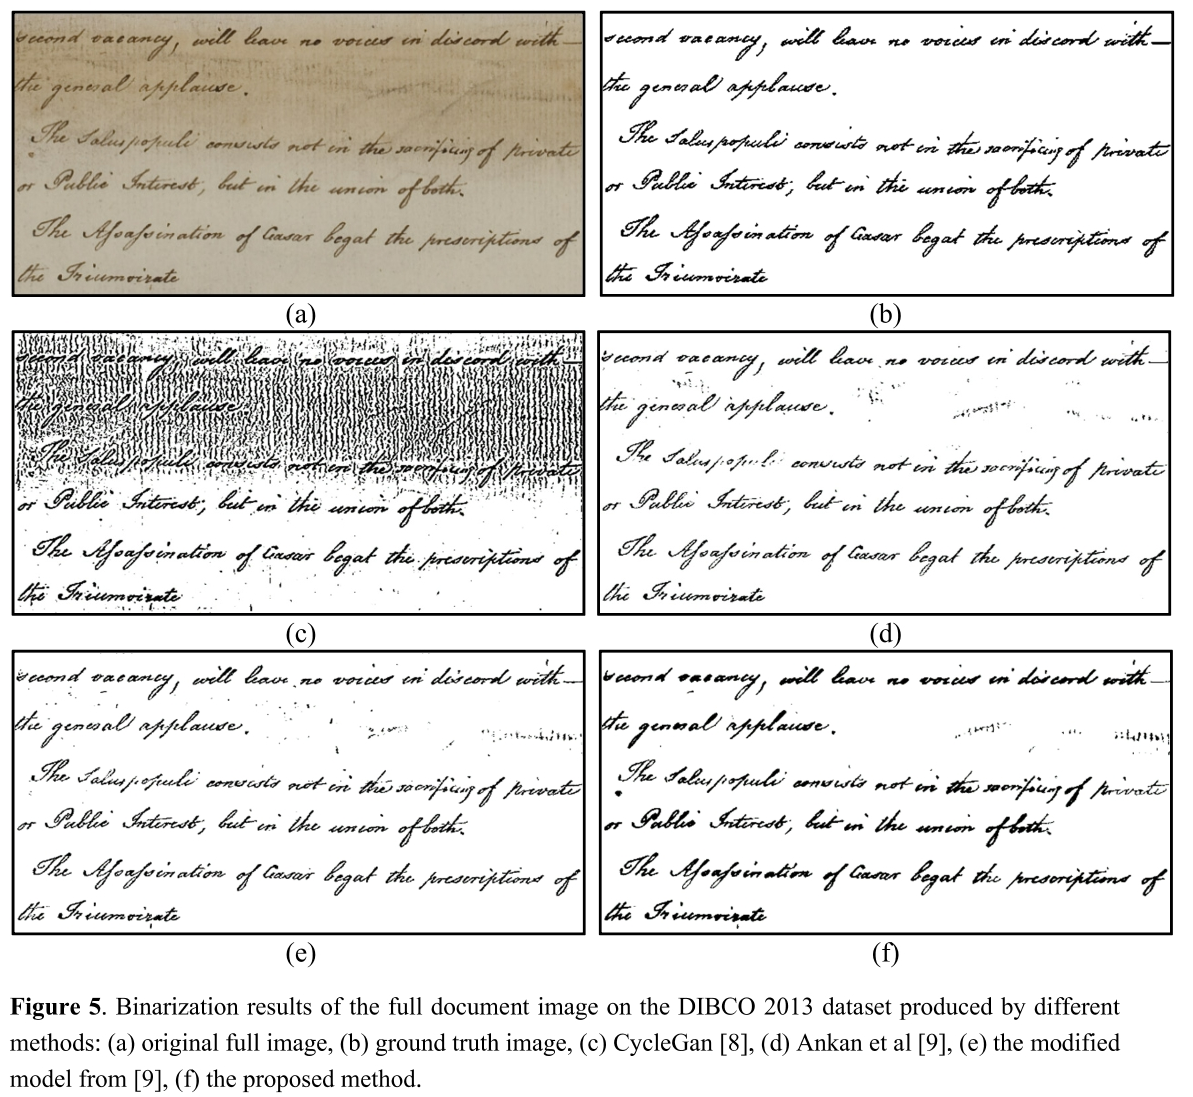 second vacancy, will leave no voices in discord with—
the general applause.
The Salus populi consists not in the sacrificing of private
or Public Interest, but in the union of both.
The Assassination of Cæsar begat the prescriptions of
the Triumvirate
second vacancy, will leave no voices in discord with—
the general applause.
The Salus populi consists not in the sacrificing of private
or Public Interest, but in the union of both.
The Assassination of Cæsar begat the prescriptions of
the Triumvirate
(a)
(b)
second vacancy, will leave no voices in discord with—
the general applause.
The Salus populi consists not in the sacrificing of private
or Public Interest, but in the union of both.
The Assassination of Cæsar begat the prescriptions of
the Triumvirate
second vacancy, will leave no voices in discord with—
the general applause.
The Salus populi consists not in the sacrificing of private
or Public Interest, but in the union of both.
The Assassination of Cæsar begat the prescriptions of
the Triumvirate
(c)
(d)
second vacancy, will leave no voices in discord with—
the general applause.
The Salus populi consists not in the sacrificing of private
or Public Interest, but in the union of both.
The Assassination of Cæsar begat the prescriptions of
the Triumvirate
second vacancy, will leave no voices in discord with—
the general applause.
The Salus populi consists not in the sacrificing of private
or Public Interest, but in the union of both.
The Assassination of Cæsar begat the prescriptions of
the Triumvirate
(e)
(f)
Figure 5. Binarization results of the full document image on the DIBCO 2013 dataset produced by different
methods: (a) original full image, (b) ground truth image, (c) CycleGan [8], (d) Ankan et al [9], (e) the modified
model from [9], (f) the proposed method.